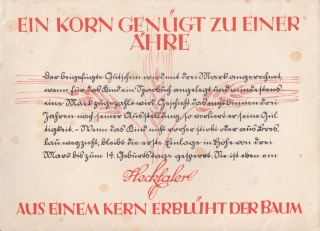 EIN KORN GENÜGT ZU EINER
ÄHRE
Der beigefügte Gutschein wird mit drei Mark angerechnet,
wenn für das Kind ein Sparbuch angelegt und mindestens
eine Mark zugezahlt wird. Geschieht das nicht binnen drei
Jahren nach seiner Ausstellung, so verliert er seine Gül-
tigkeit. – Wenn das Kind nicht vorher stirbt oder aus Bres-
lau wegzieht, bleibt die erste Einlage in Höhe von drei
Mark bis zum 14. Geburtstage gesperrt. Sie ist eben ein
Hecktaler
AUS EINEM KERN ERBLÜHT DER BAUM